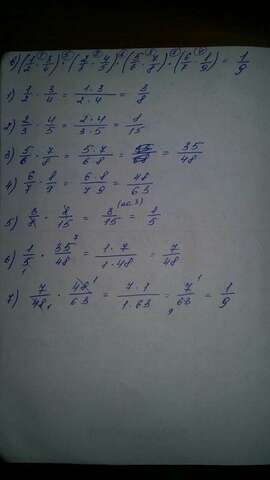 б) (1/2 · 3/4) · (2/3 · 4/5) · (5/6 · 7/8) · (6/7 · 8/9) = 1/9
1) 1/2 · 3/4 = 1·3/2·4 = 3/8
2) 2/3 · 4/5 = 2·4/3·5 = 8/15
3) 5/6 · 7/8 = 5·7/6·8 = 35/48
4) 6/7 · 8/9 = 6·8/7·9 = 48/63
5) 3/8 · 8/15 = 3/15 = 1/5
6) 1/5 · 35/48 = 1·7/1·48 = 7/48
7) 7/48 · 48/63 = 7·1/1·63 = 7/63 = 1/9